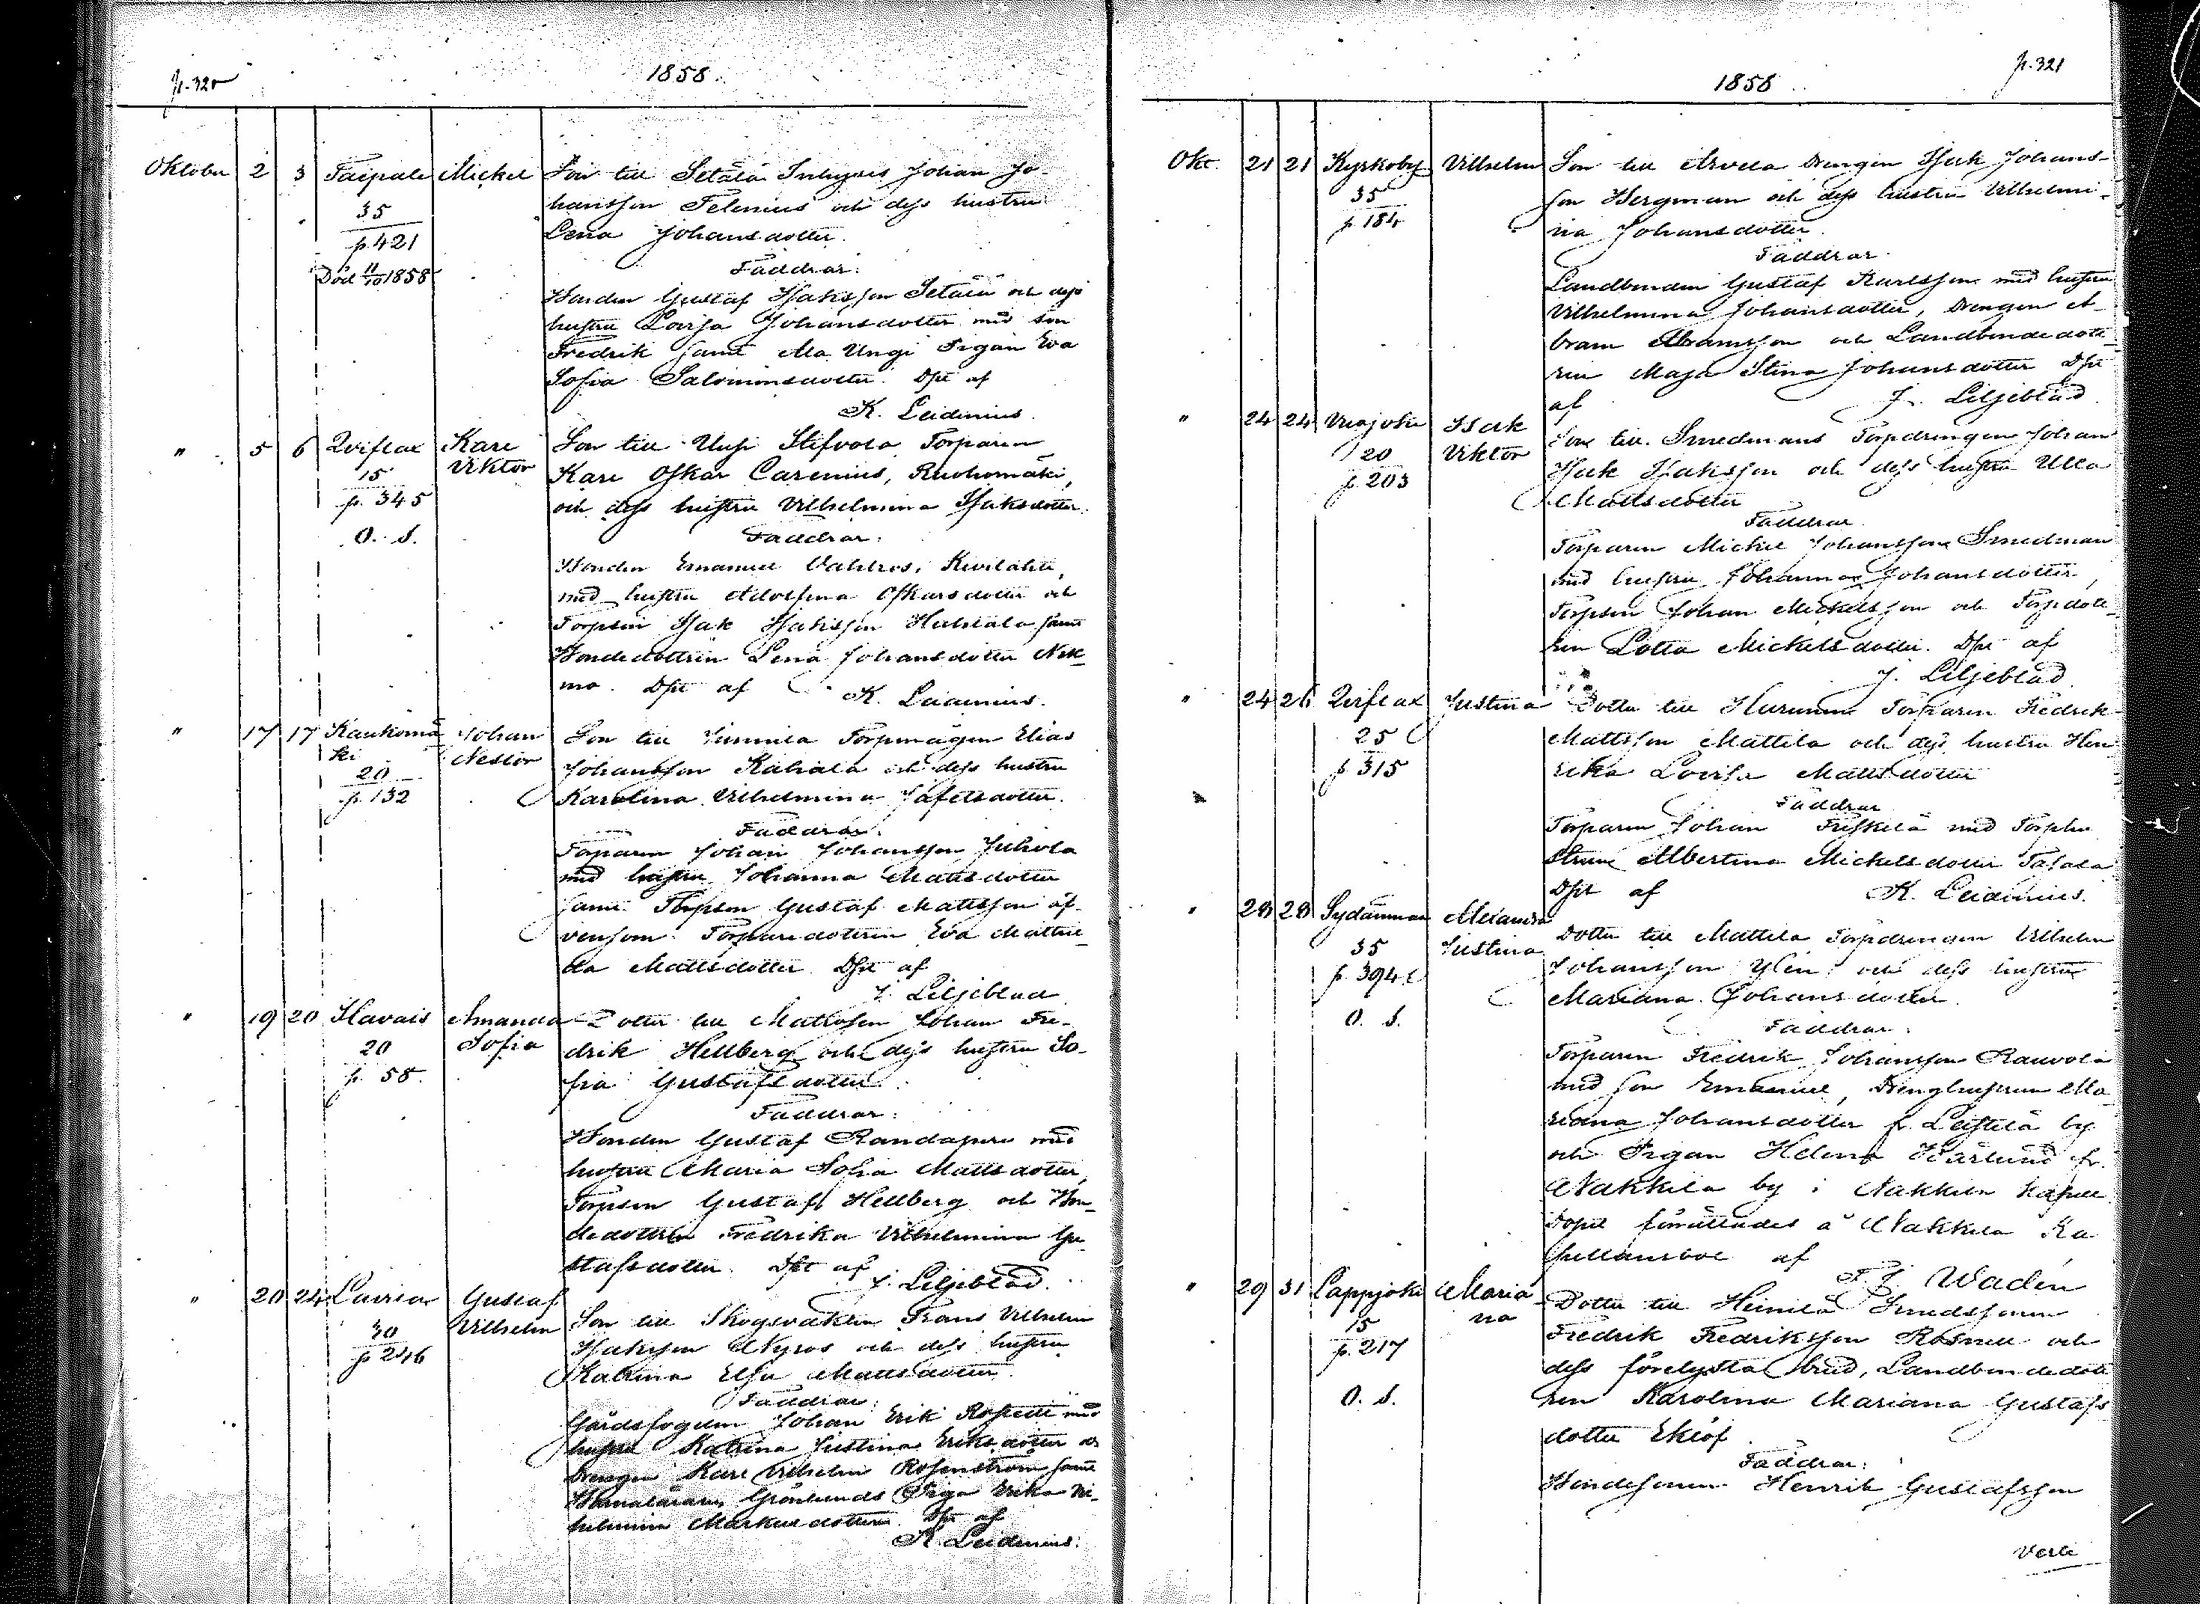 p. 320
1858.
Oktober 2 3 Taipale Mickel
35
p. 421
Död 11/10 1858
Son till Setälä Inhyses Johan Jo-
hansson Felenius och dess hustru
Lena Johansdotter.
Faddrar:
Bonden Gustaf Isaksson Setälä och dess
hustru Lovisa Johansdotter med son
Fredrik samt Ala Ungi Pigan Eva
Sofia Salomonsdotter. Dpt af
K. Leidenius.
" 5 6 Qviflax Karl
Viktor
15
p. 345
O. S.
Son till Uusi Stifvola Torparen
Karl Oskar Carenius, Ruohomäki,
och dess hustru Vilhelmina Isaksdotter.
Faddrar:
Bonden Emanuel Vahlros, Kivilähti,
med hustru Adolfina Oskarsdotter och
Torpson Isak Isaksson Huhtala samt
Bondedottren Lena Johansdotter
Dpt af
K. Leidenius.
" 17 17 Kaukomä
ki
Johan
Nestor
20
p. 132
Son till Torpmågen Elias
Johansson Kahala och dess hustru
Karolina Vilhelmina Jafetsdotter.
Faddrar:
Torparen Johan Johansson Juhola
med hustru Johanna Mattsdotter
samt Torpson Gustaf Mattsson äf-
vensom Torparedottren Eva Matil-
da Mattsdotter Dpt af
J. Liljeblad
" 19 20 Havais Amanda
Sofia
20
p. 58.
Dotter till Matrosen Johan Fre-
drik Hellberg och dess hustru So-
fia Gustafsdotter.
Faddrar:
Bonden Gustaf Randaperi med
hustru Maria Sofia Mattsdotter,
Torpson Gustaf Hellberg och Bon-
dedottren Fredrika Vilhelmina Gu-
stafsdotter. Dpt af
J. Liljeblad.
" 20 24 Lairia Gustaf
Vilhelm
30
p 246
Son till Skogsvakten Frans Vilhelm
Isaksson Nyros och dess hustru
Katrina Elsa Mattsdotter.
Faddrar:
Gårdsfogden Johan Erik med
hustru Katrina Justina Eriksdotter o
Drengen Karl Vilhelm Rosenström samt
Grönlunds Piga Erika Vi-
helmina Markusdotter. Dpt af
K. Leidenius.
p. 321
1858
Okt. 21 21 Kyrkoby Vilhelm
35
p 184
Son till Arvela Drengen Isak Johans-
son Bergman och dess hustru Vilhelmi-
na Johansdotter.
Faddrar.
Landbonden Gustaf Karlsson med hustru
Vilhelmina Johansdotter, Drengen A-
bram Abramsson och Landbondedott-
ren Maja Stina Johansdotter Dpt
af J. Liljeblad
" 24 24 Isak
Viktor
20
p. 203
Son till Smedmans Torpdrengen Johan
Isak Isaksson och dess hustru Ulla
Mattsdotter
Faddrar.
Torparen Mickel Johansson Smedman
med hustru Johanna Johansdotter,
Torpson Johan Mickelsson och Torpdott-
ren Lotta Mickelsdotter. Dpt af
J. Liljeblad
" 24 26 Qviflax Justina
25
p 315
Dotter till Torparen Fredrik
Mattsson Mattila och dess hustru Hen
rika Lovisa Mattsdotter
Faddrar
Torparen Johan Friskilä med Torphu
strun Albertina Mickelsdotter
Dpt af K. Leidenius.
" 28 28 Sydänmaa Alexandra
Justina
35
p. 394
O. S.
Dotter till Mattila Torpdrengen Vilhelm
Johansson Ylén och dess hustru
Mariana Johansdotter.
Faddrar:
Torparen Fredrik Johansson Rauvola
med son Emanuel, Drenghustrun Ma
riana Johansdotter fr. Leistilä by
och Pigan Helena fr.
Nakkila by i Nakkila kapell
Dopet förrättades å Nakkila Ka
pellansbol af
F. J. Wadén
" 29 31 Lappjoki Maria
na
15
p. 217
O. S.
Dotter till Heinilä Smedssonen
Fredrik Fredriksson Rosnell och
dess förelysta brud, Landbondedott
ren Karolina Mariana Gustafs
dotter Eklöf
Faddrar:
Bondesonen Henrik Gustafsson
Verte